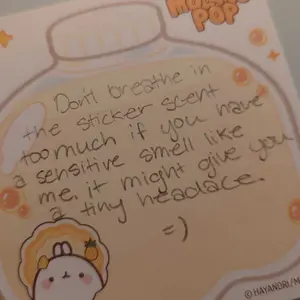 POP
Don't breathe in
the sticker scent
too much if you have
a sensitive smell like
me. it might give you
a tiny headace.
=)
©HAYANORI/M